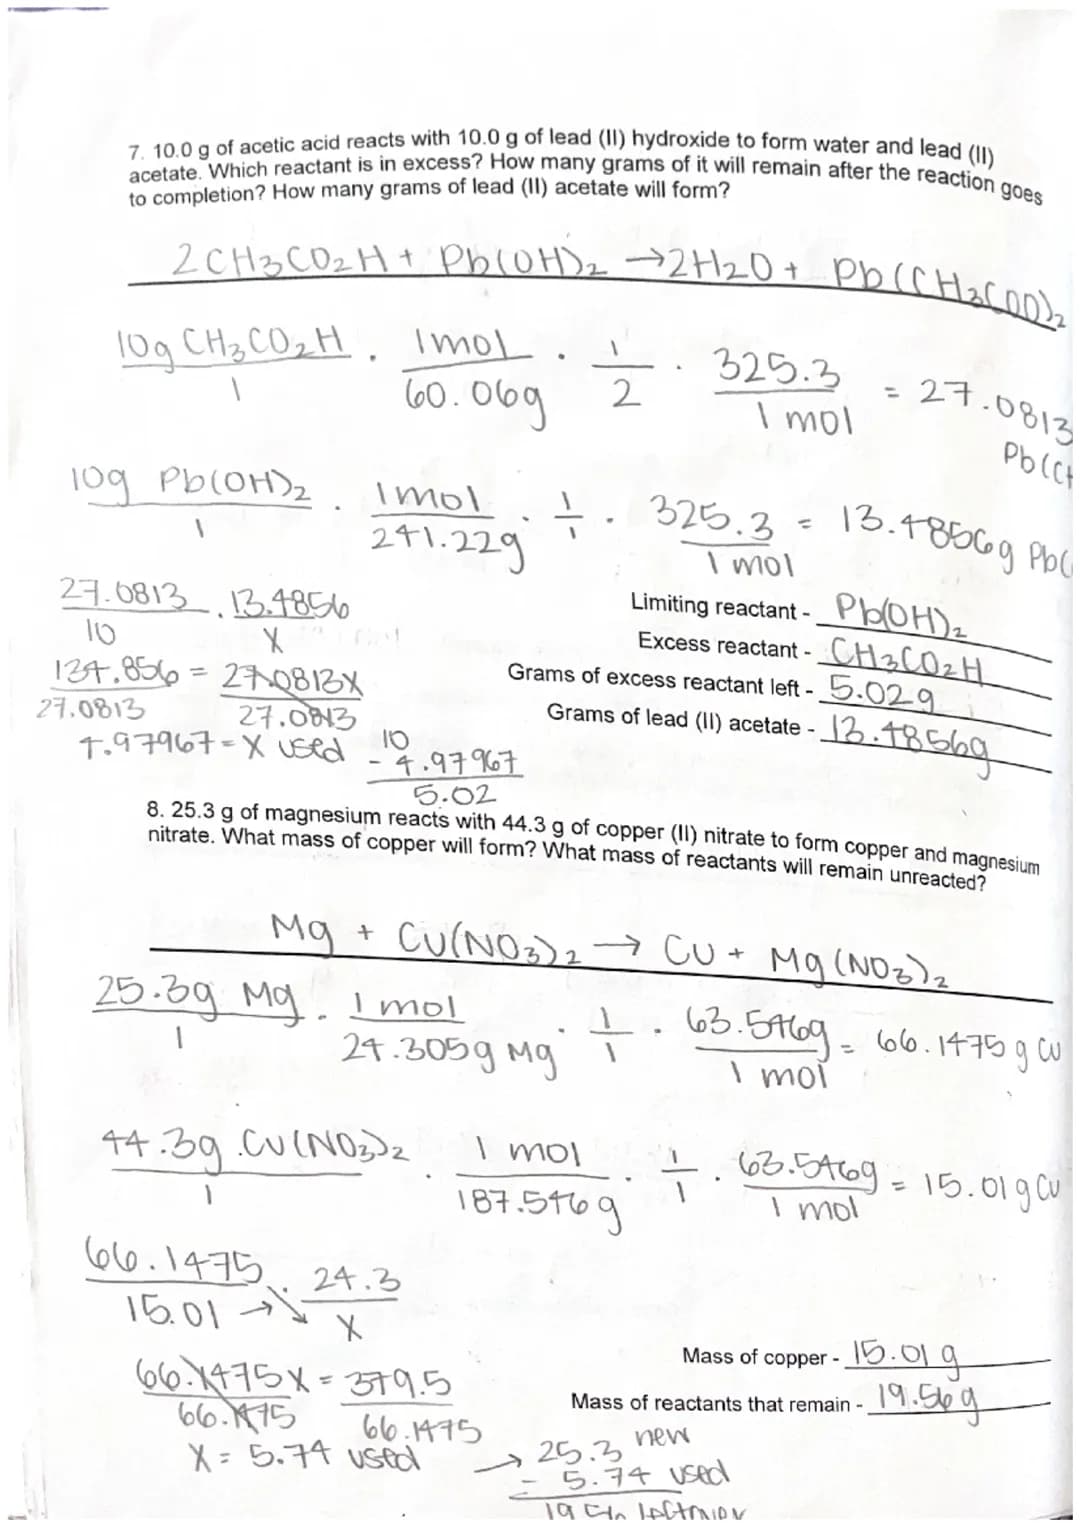 7. 10.0 g of acetic acid reacts with 10.0 g of lead (II) hydroxide to form water and lead (II)
acetate. Which reactant is in excess? How many grams of it will remain after the reaction goes
to completion? How many grams of lead (II) acetate will form?
2CH3CO2H + Pb(OH)2 → 2H2O + Pb(CH3COO)2
10g CH3CO2H / 1 · 1mol / 60.06g · 1/2 · 325.3 / 1 mol = 27.0813
Pb(CH
10g Pb(OH)2 / 1 · 1mol / 241.22g · 1/1 · 325.3 / 1 mol = 13.4856g Pb(
27.0813 / 10 · 13.4856 / X
Limiting reactant - Pb(OH)2
Excess reactant - CH3CO2H
134.856 / 27.0813 = 27.0813X / 27.0813
Grams of excess reactant left - 5.02g
Grams of lead (II) acetate - 13.4856g
4.97967 = X used
10
- 4.97967
5.02
8. 25.3 g of magnesium reacts with 44.3 g of copper (II) nitrate to form copper and magnesium
nitrate. What mass of copper will form? What mass of reactants will remain unreacted?
Mg + Cu(NO3)2 → Cu + Mg(NO3)2
25.3g Mg / 1 · 1 mol / 24.305g Mg · 1/1 · 63.546g / 1 mol = 66.1475 g Cu
44.3g Cu(NO3)2 / 1 · 1 mol / 187.546g · 1/1 · 63.546g / 1 mol = 15.01 g Cu
66.1475 / 15.01 → · 24.3 / X
66.1475X / 66.1475 = 379.5 / 66.1475
Mass of copper - 15.01 g
Mass of reactants that remain - 19.56 g
X = 5.74 used
→ 25.3 new
- 5.74 used
19.56 leftover